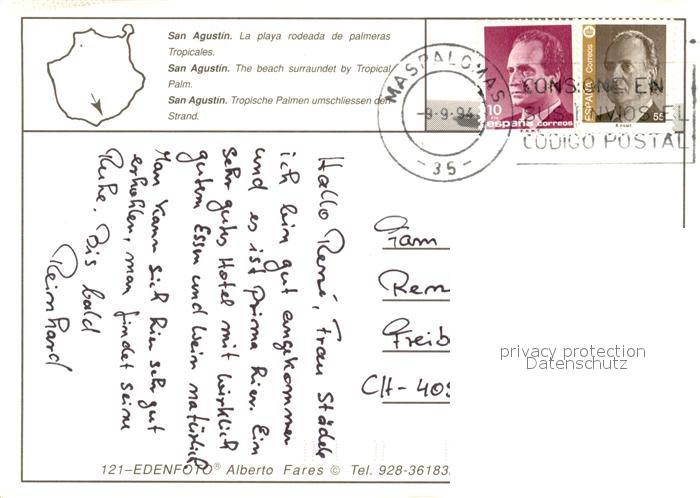 San Agustín. La playa rodeada de palmeras
Tropicales.
San Agustín. The beach surraundet by Tropical
Palm.
San Agustín. Tropische Palmen umschliessen den
Strand.
MASPALOMAS
-9-9-94
-35-
CONSIGNE EN
SUS ENVIOS EL
CODIGO POSTAL
10
españa correos
ESPAÑA Correos
55
Hallo René, Frau Städele
ich bin gut angekommen
und es ist prima hier. Ein
sehr gutes Hotel mit wirklich
gutem Essen und Wein natürlich
Man kann sich hier sehr gut
erhohlen, man findet seine
Ruhe. Bis bald
Reinhard
Fam
Ren
Freib
CH-405
privacy protection
Datenschutz
121-EDENFOTO® Alberto Fares © Tel. 928-36183